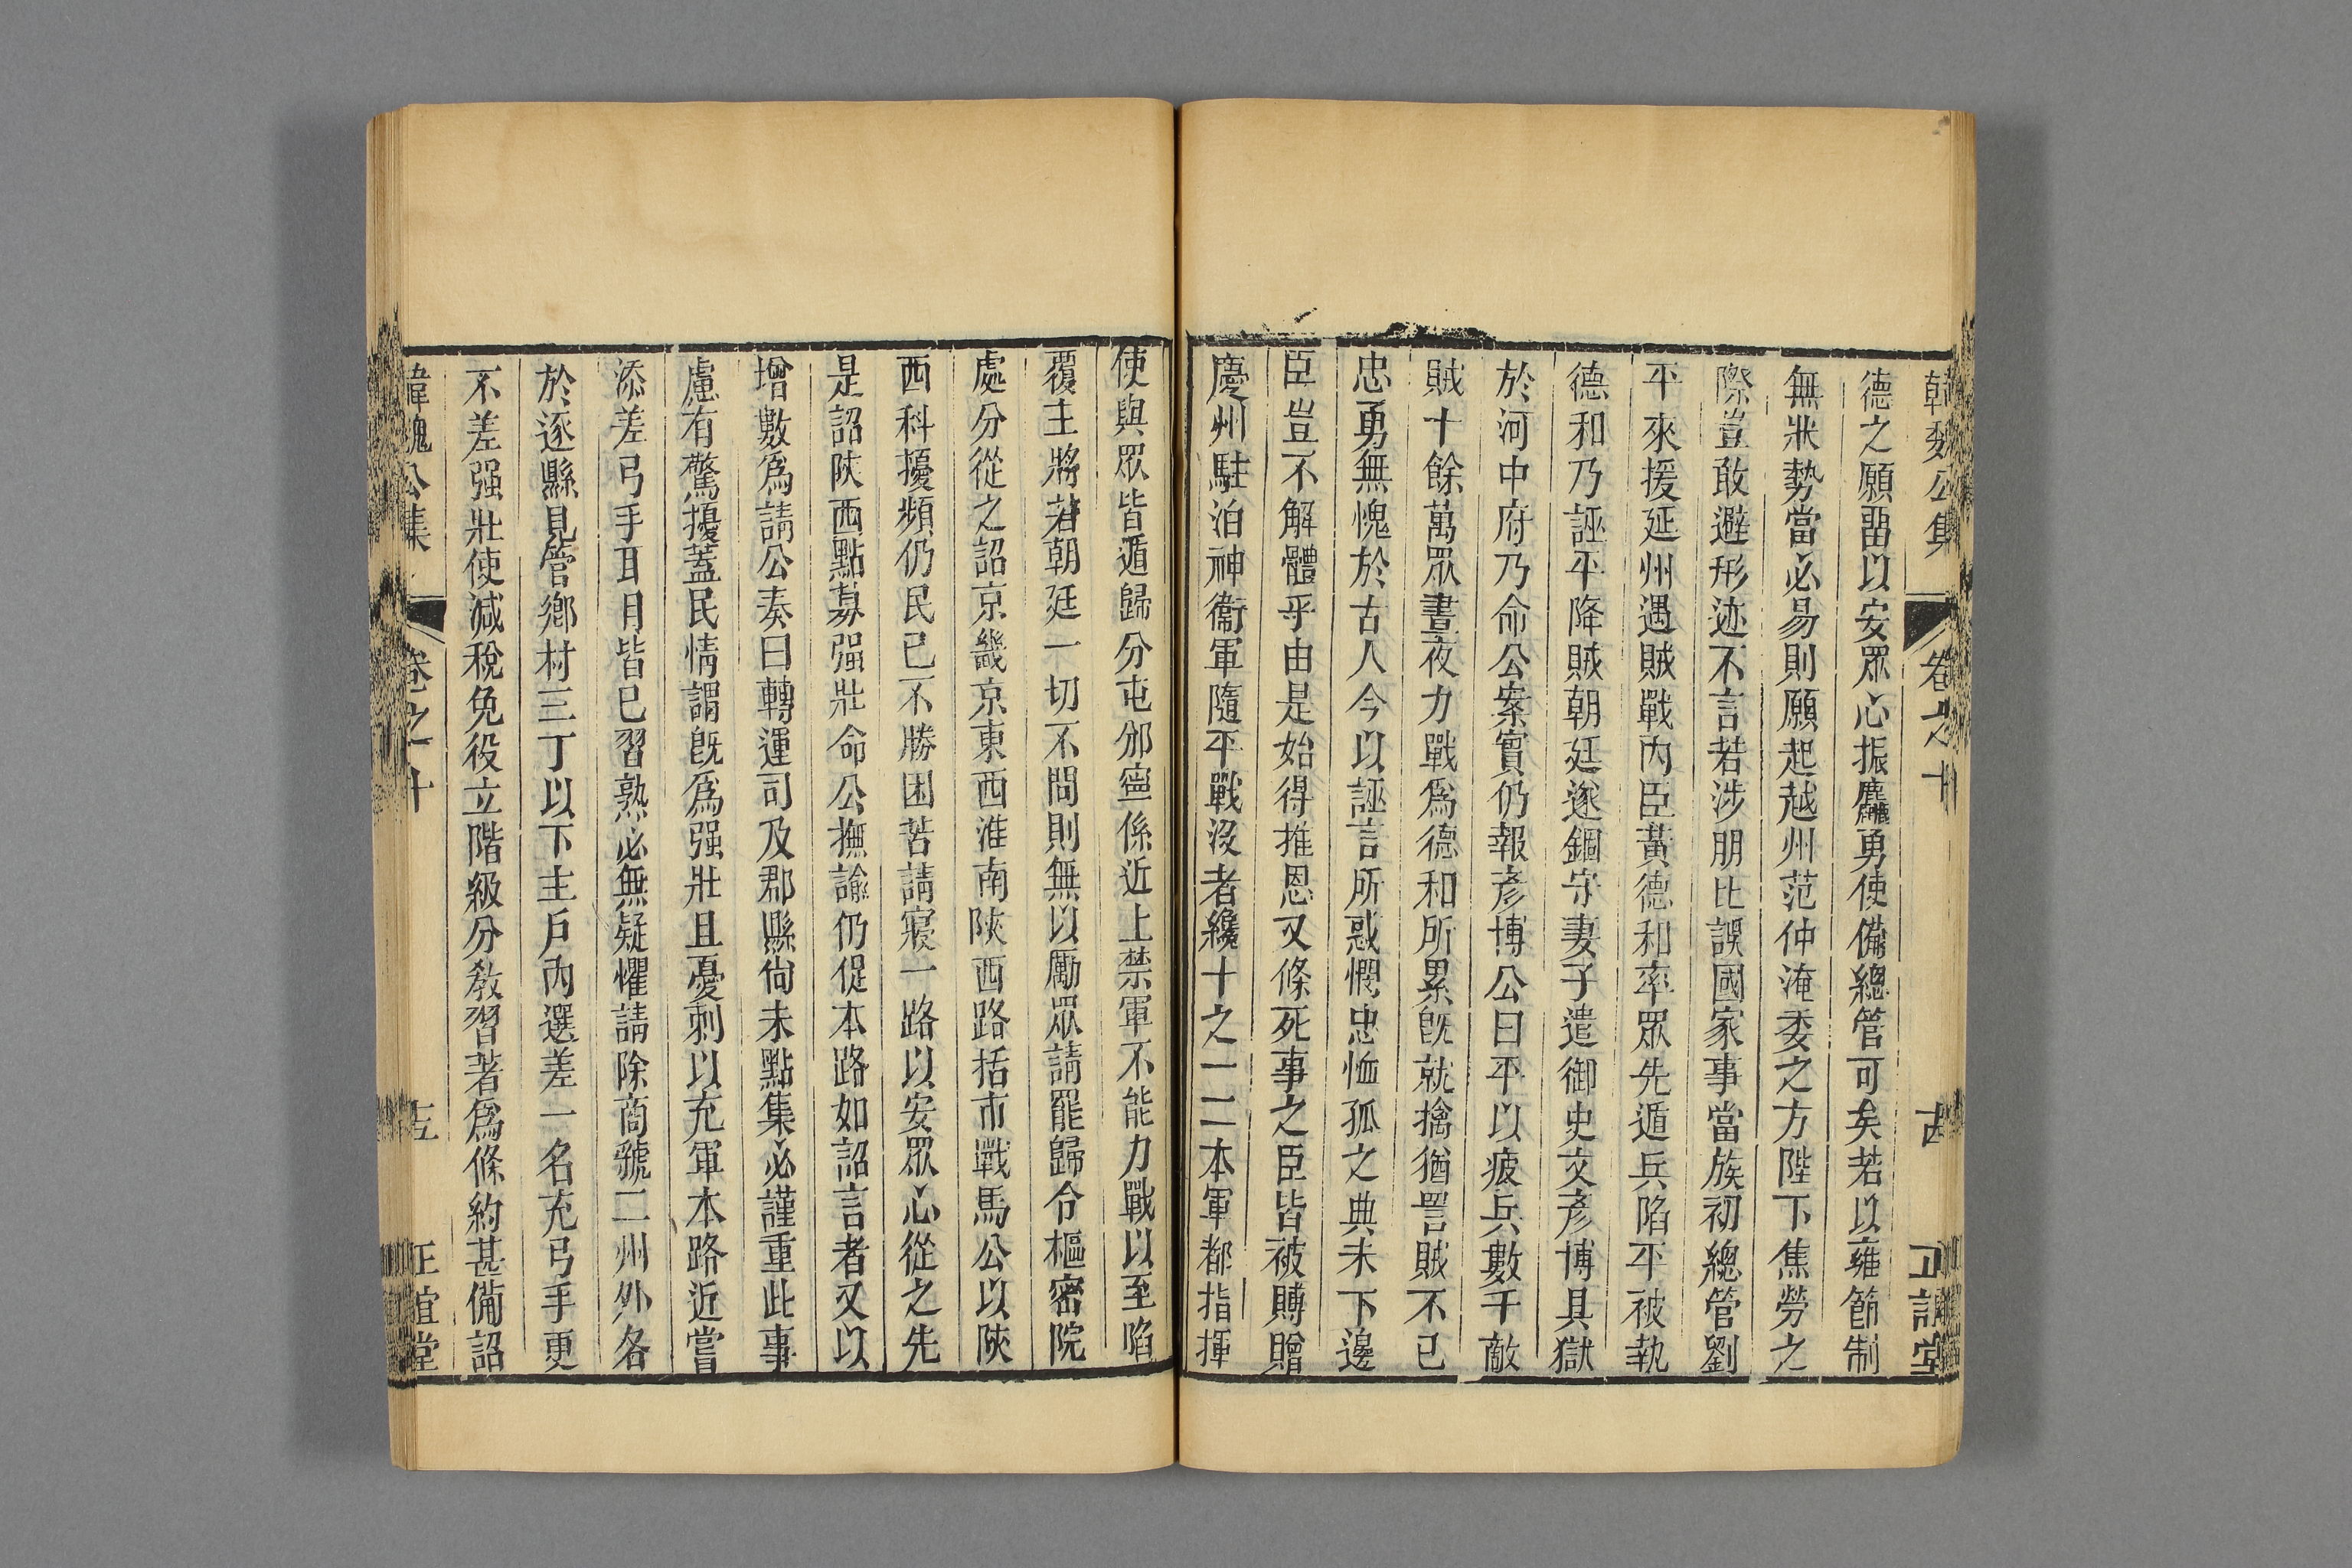 韓魏公集 卷之十 古 正誼堂
德之願畱以安眾心振麤勇使備總管可矣若以雍節制
無狀勢當必易則願起越州范仲淹委之方陛下焦勞之
際豈敢避形迹不言若涉朋比誤國家事當族初總管劉
平來援延州遇賊戰內臣黃德和率眾先遁兵陷平被執
德和乃誣平降賊朝廷遂錮守妻子遣御史文彥博具獄
於河中府乃命公案實仍報彥博公曰平以疲兵數千敵
賊十餘萬眾晝夜力戰爲德和所累旣就擒猶詈賊不已
忠勇無愧於古人今以誣言所惑憫忠恤孤之典未下邊
臣豈不解體乎由是始得推恩又條死事之臣皆被賻贈
慶州駐泊神衞軍隨平戰沒者纔十之一二本軍都指揮
使與眾皆遁歸分屯邠寧係近上禁軍不能力戰以至陷
覆主將若朝廷一切不問則無以勵眾請罷歸令樞密院
處分從之詔京畿京東西淮南陝西路括市戰馬公以陝
西科擾頻仍民已不勝困苦請寢一路以安眾心從之先
是詔陝西點募强壯命公撫諭仍促本路如詔言者又以
增數爲請公奏曰轉運司及郡縣尙未點集必謹重此事
慮有驚擾蓋民情謂旣爲强壯且憂刺以充軍本路近嘗
添差弓手耳目皆已習熟必無疑懼請除商虢二州外各
於逐縣見管鄉村三丁以下主戶內選差一名充弓手更
不差强壯使減稅免役立階級分敎習著爲條約甚備詔
韓魏公集 卷之十 十五 正誼堂